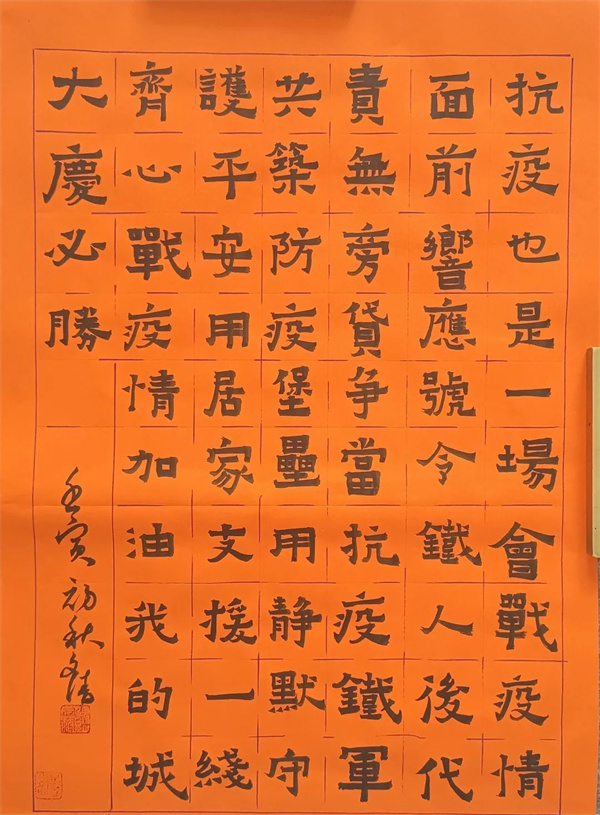 抗疫也是一場會戰疫情
面前響應號令鐵人後代
責無旁貸争當抗疫鐵軍
共築防疫堡壘用静默守
護平安用居家支援一綫
齊心戰疫情加油我的城
大慶必勝
壬寅初秋